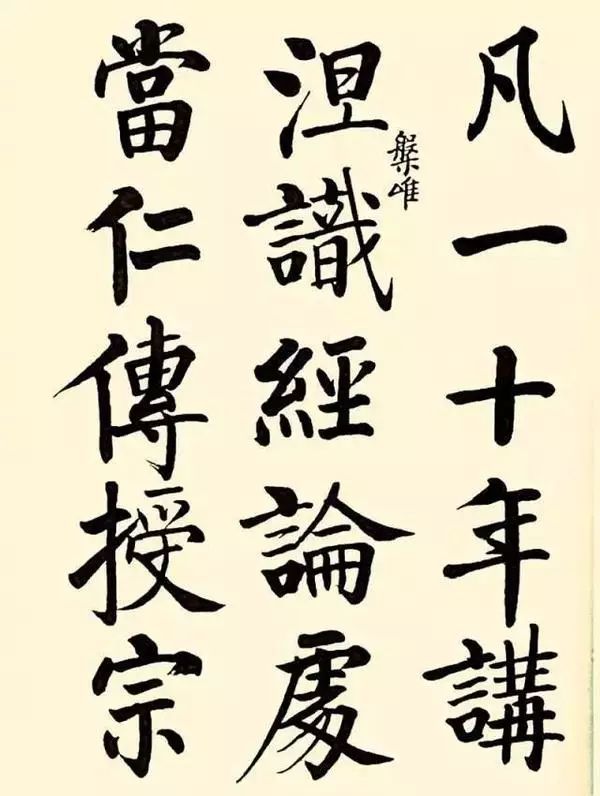 凡一十年講
涅槃唯識經論處
當仁傳授宗